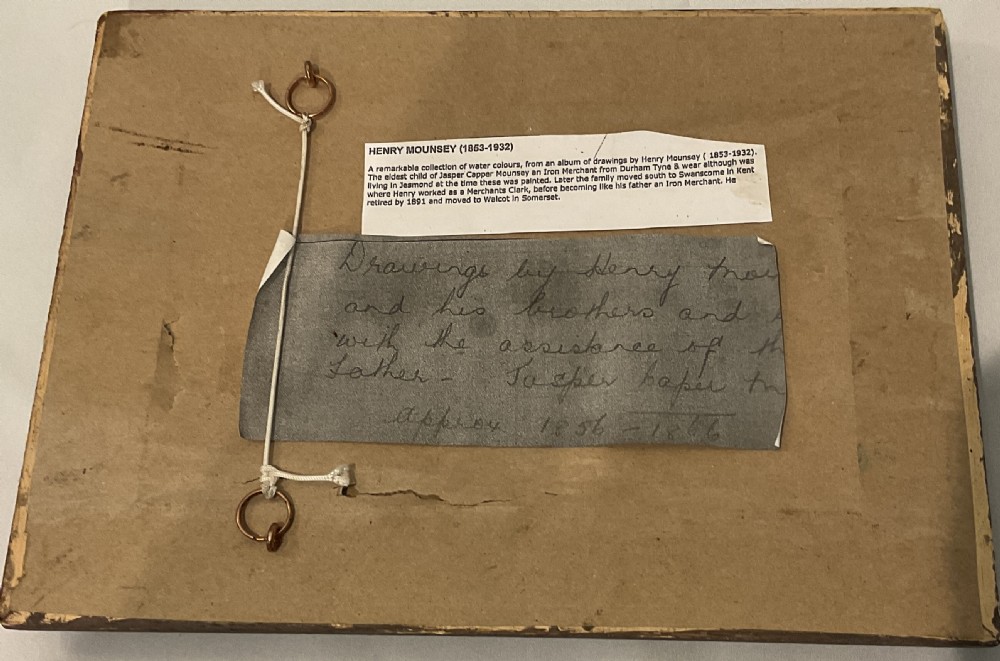 HENRY MOUNSEY (1853-1932)
A remarkable collection of water colours, from an album of drawings by Henry Mounsey ( 1853-1932).
The eldest child of Jasper Capper Mounsey an Iron Merchant from Durham Tyne & wear although was
living in Jesmond at the time these was painted. Later the family moved south to Swanscome in Kent
where Henry worked as a Merchants Clark, before becoming like his father an Iron Merchant. He
retired by 1891 and moved to Walcot in Somerset.
Drawings by Henry
and his brothers and
with the assistance of
Father - Jasper
approx 1856 - 1866